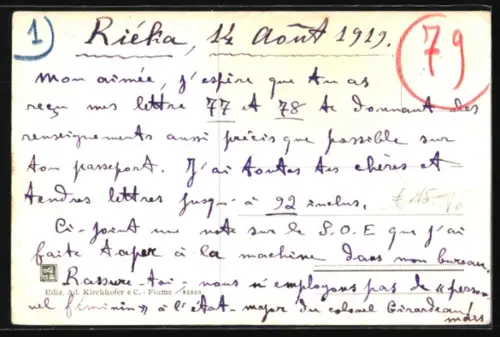 1
Riéka, 14 Août 1919.
79
Mon aimée, j'espère que tu as
reçu mes lettre 77 et 78 te donnant des
renseignements aussi précis que possible sur
ton passeport. J'ai toutes tes chères et
tendres lettres jusqu'à 92 inclus.
Ci-joint une note sur le S.O.E que j'ai
faite taper à la machine dans mon bureau.
Rassure-toi - nous n'employons pas de « person
Ediz. Ad. Kirchhofer e C. - Fiume
nel féminin » à l'état-major du colonel Girardeau!
mars